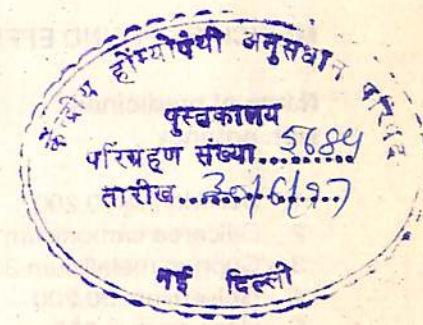 केन्द्रीय होम्योपैथी अनुसंधान परिषद
पुस्तकालय
परिग्रहण संख्या.........5684
तारीख.........30/6/97
नई दिल्ली